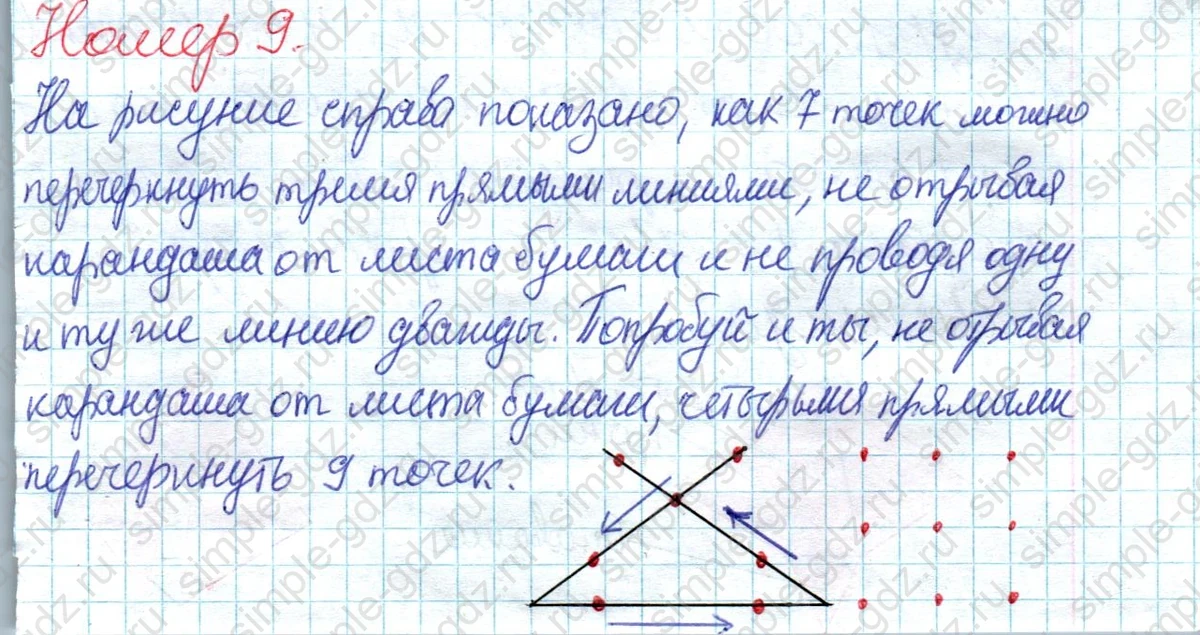 Номер 9.
На рисунке справа показано, как 7 точек можно
перечеркнуть тремя прямыми линиями, не отрывая
карандаша от листа бумаги и не проводя одну
и ту же линию дважды. Попробуй и ты, не отрывая
карандаша от листа бумаги, четырьмя прямыми
перечеркнуть 9 точек.
simple-gdz.ru